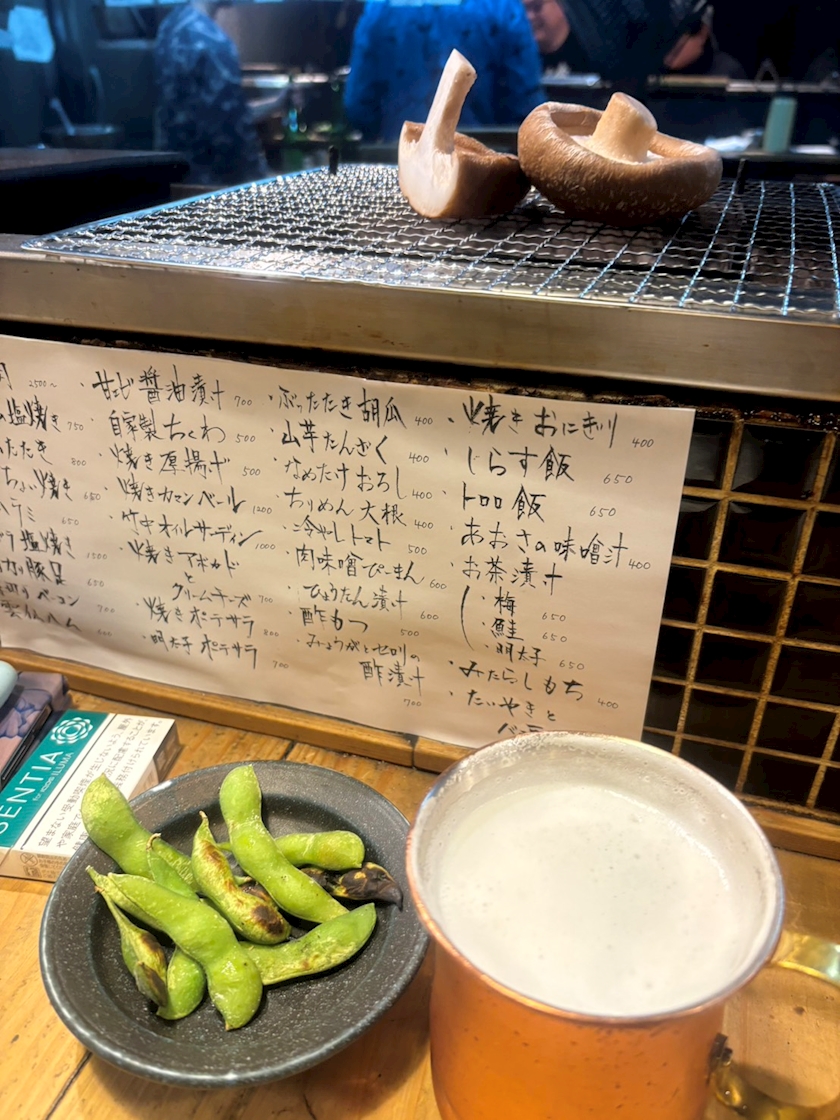 2500~
塩焼き 750
たたき 800
ちょい焼き 650
ハラミ 650
塩焼き 1500
豚足 650
ベーコン 700
ハム
甘エビ醤油漬け 700
・自家製ちくわ 500
・焼き厚揚げ 500
・焼きカマンベール 1200
・竹中オイルサーディン 1000
・焼きアボカド
と
クリームチーズ 700
・焼きポテサラ 800
・明太子ポテサラ 700
・ぶったたき胡瓜 400
・山芋たんざく 400
・なめたけおろし 400
・ちりめん大根 400
・冷やしトマト 500
・肉味噌ぴーまん 600
・ひょうたん漬け 600
・酢もつ 500
・みょうがとセロリの
酢漬け 700
・焼きおにぎり 400
・しらす飯 650
・トロロ飯 650
・あおさの味噌汁 400
・お茶漬け
・梅 650
・鮭 650
・明太子 650
・みたらしもち 400
・たいやきと
SENTIA
for IQOS ILUMA
望まない受動喫煙が生じないよう、屋外
や家庭で